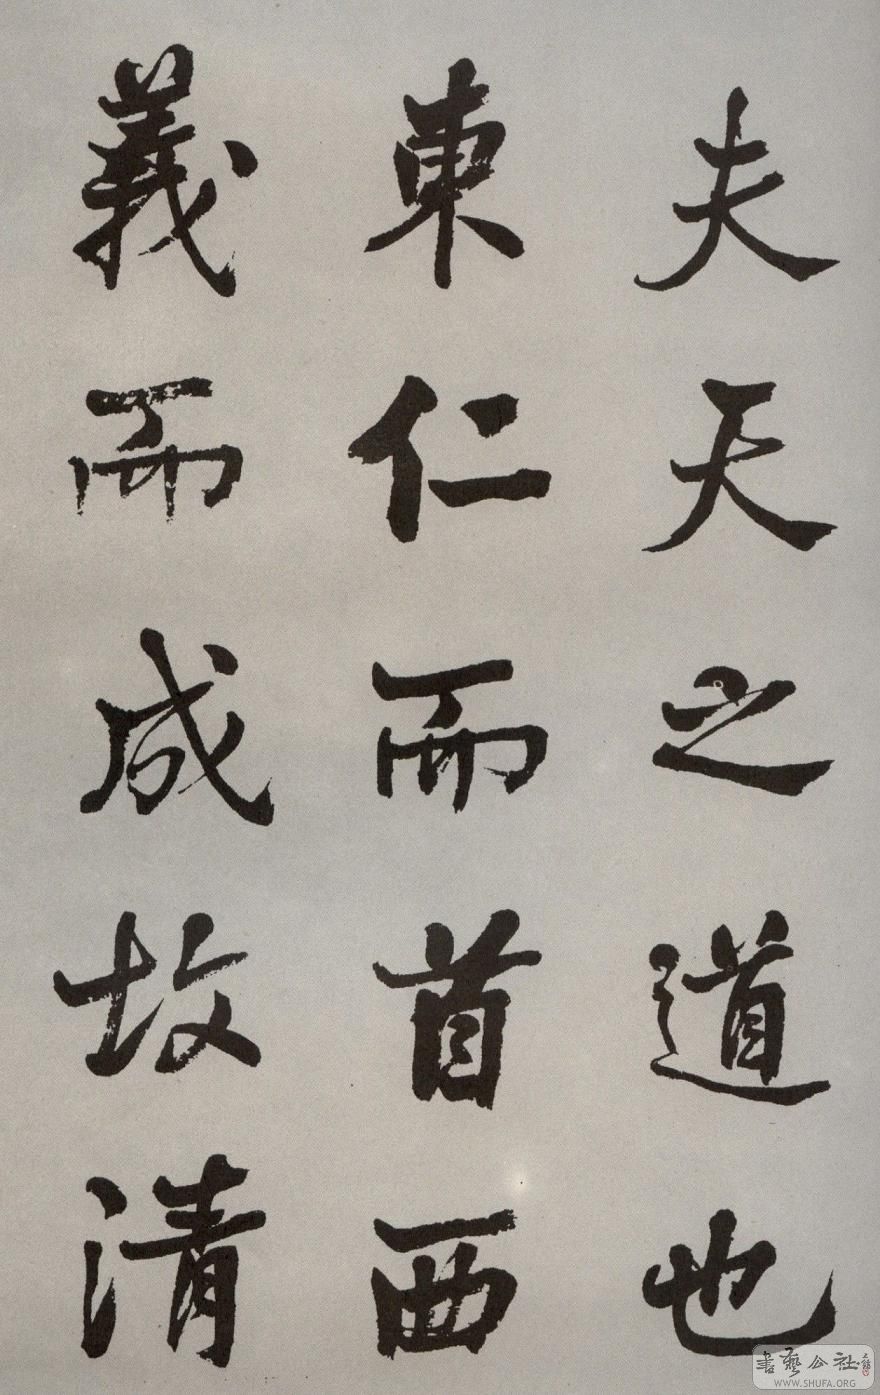 夫天之道也
東仁而首西
義而成故清
書藝公社
WWW.SHUFA.ORG